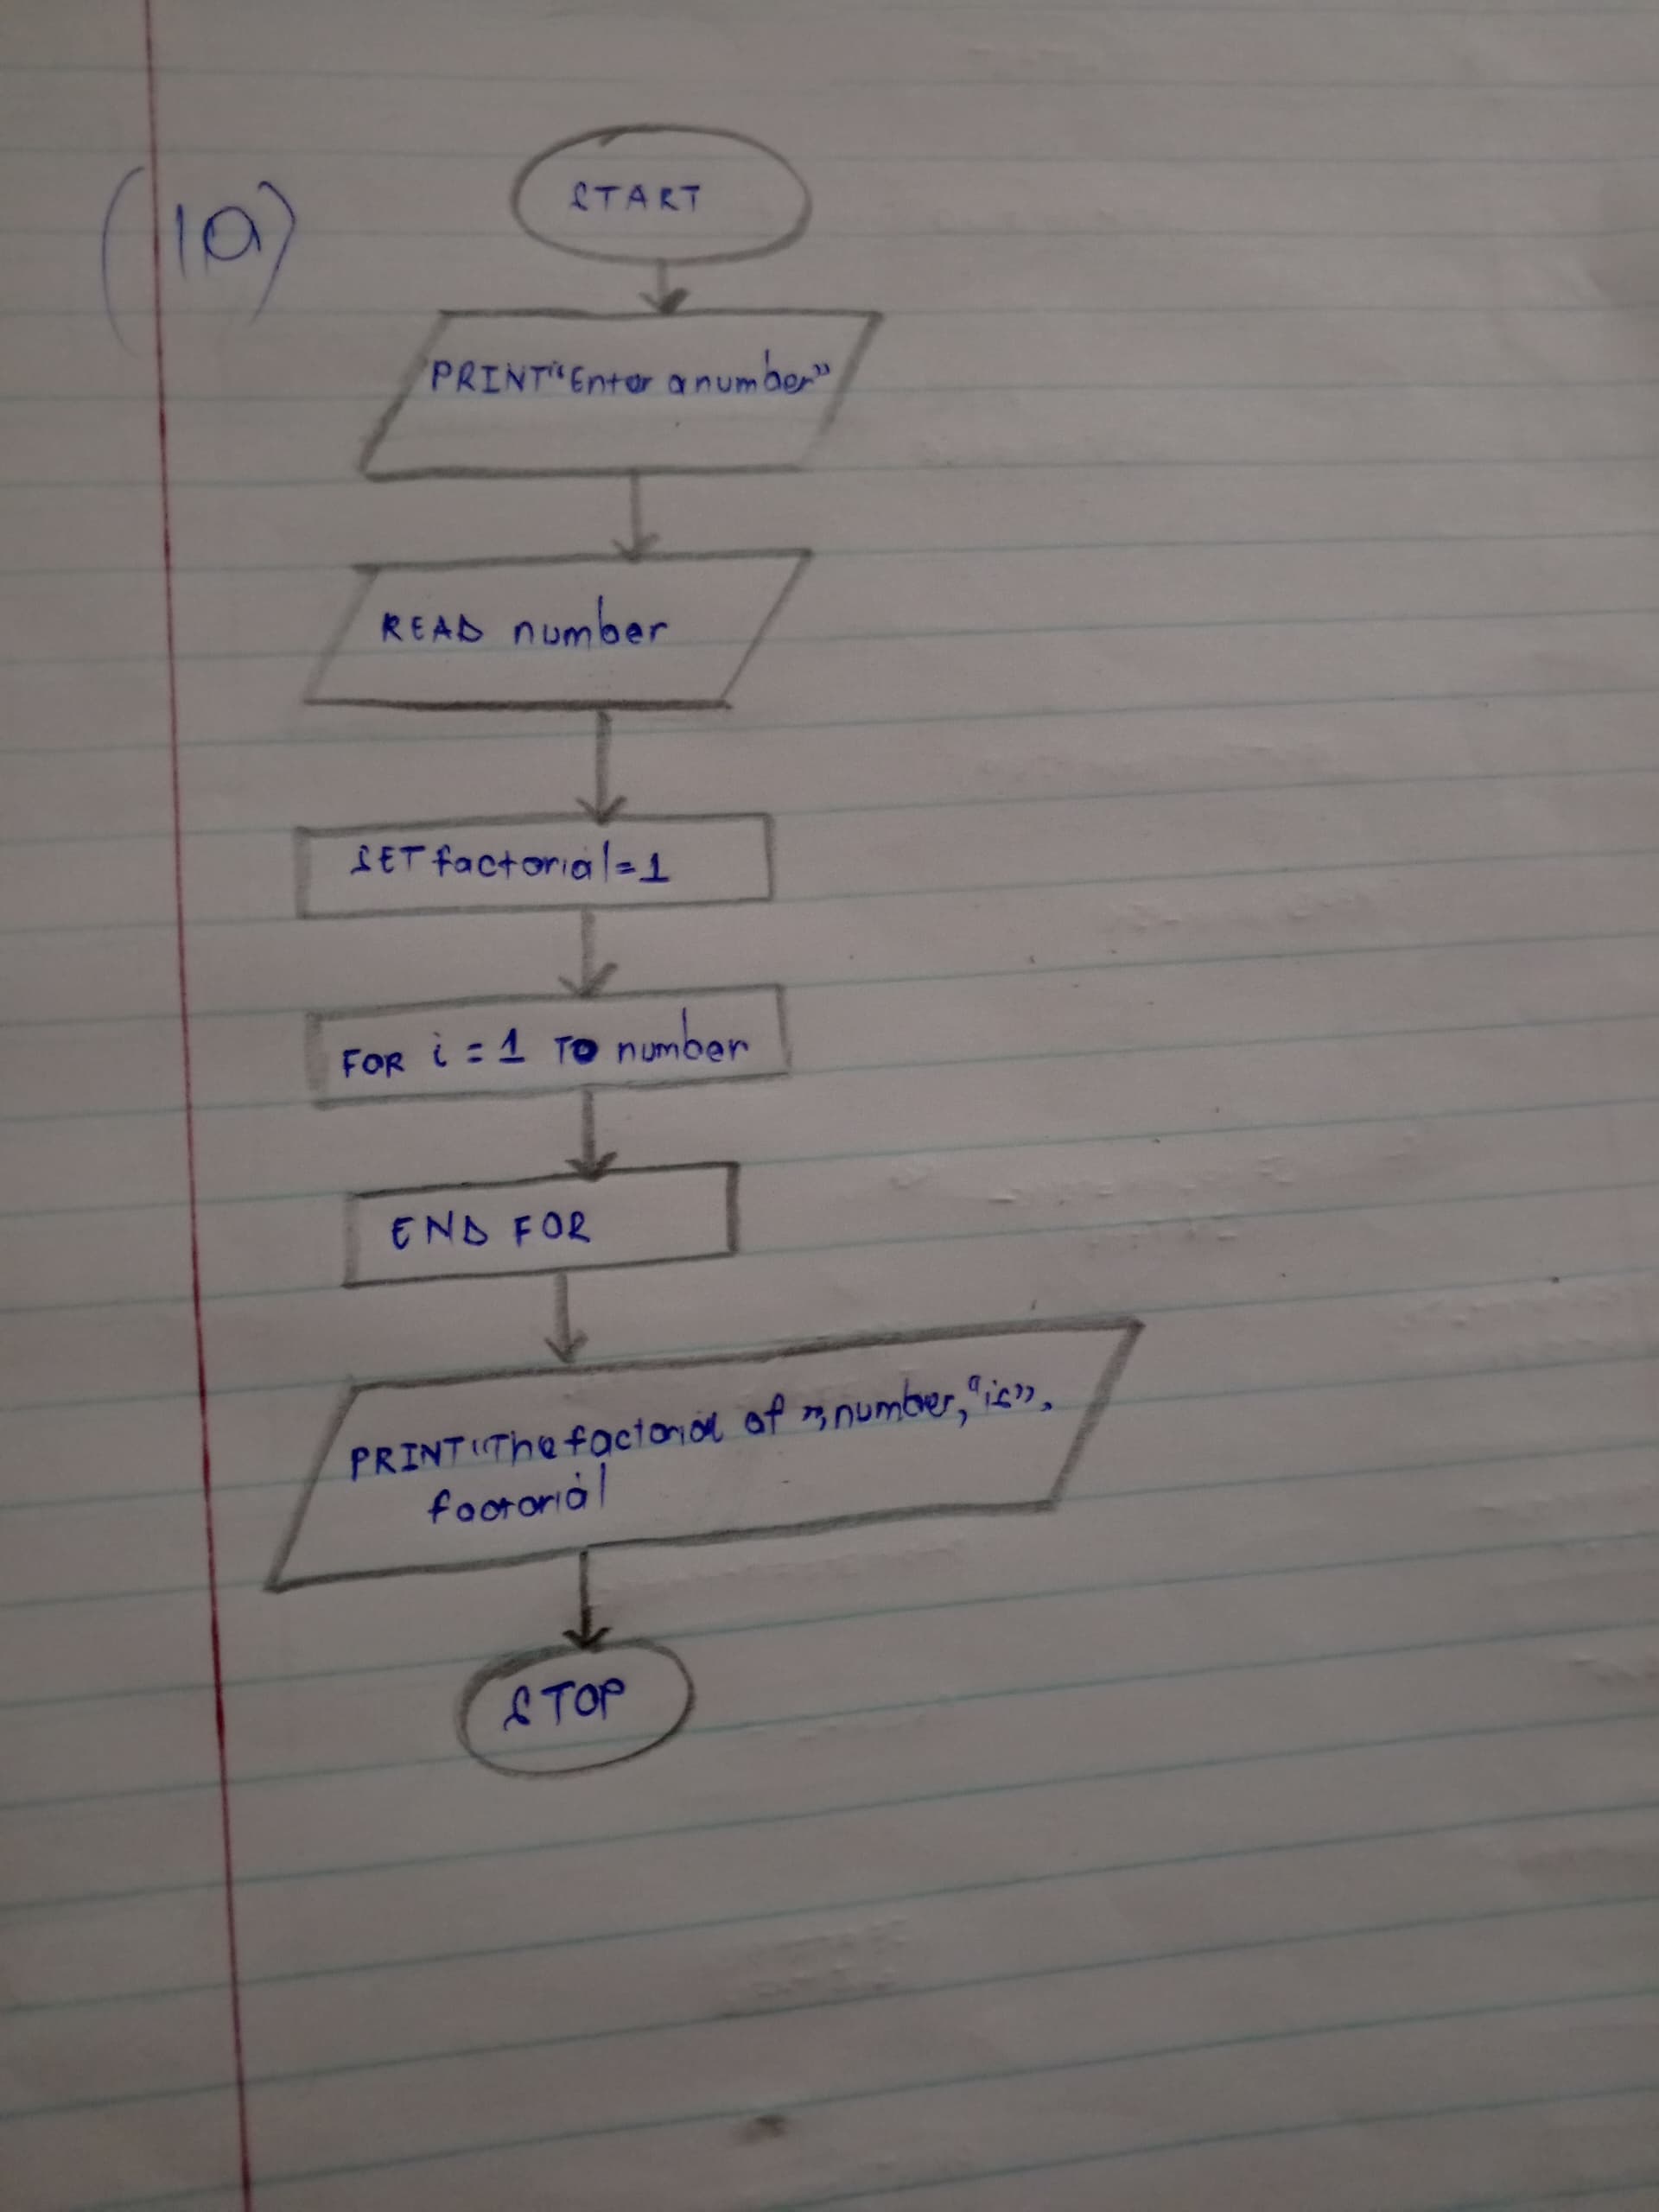 (10)
START
PRINT“Enter a number”
READ number
SET factorial=1
FOR i = 1 TO number
END FOR
PRINT“The factorial of ”,number,“is”,
factorial
STOP